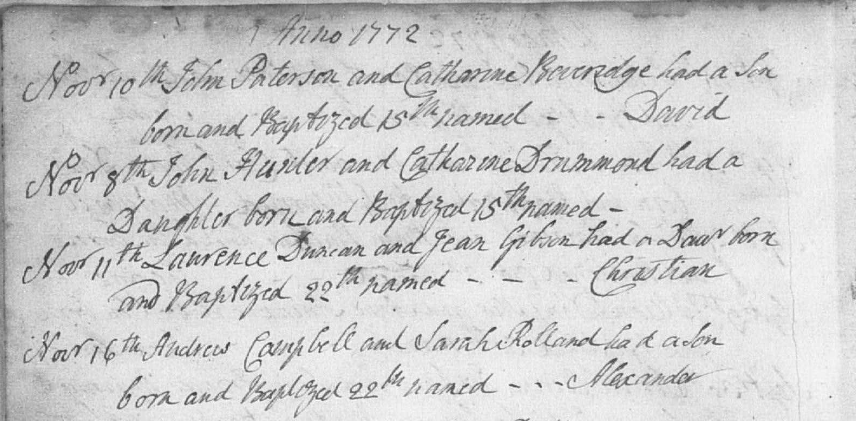 Anno 1772
Novr 10th John Paterson and Catharine Beveredge had a Son
born and Baptized 15th named - - David
Novr 8th John Hunter and Catharine Drummond had a
Daughter born and Baptized 15th named -
Novr 11th Laurence Duncan and Jean Gibson had a Daur born
and Baptized 22th named - - - Christian
Novr 16th Andrew Campbell and Sarah Rolland had a Son
born and Baptized 22th named - - - Alexander